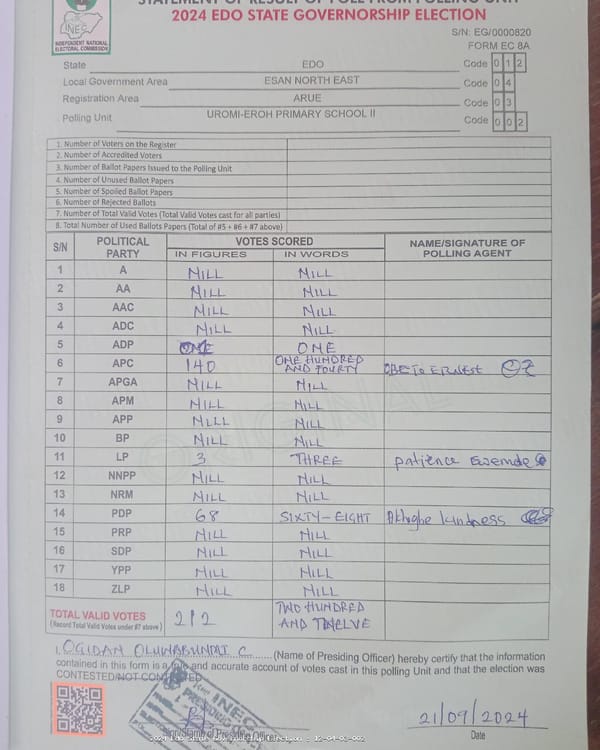 STATEMENT OF RESULT OF POLL FROM POLLING UNIT
2024 EDO STATE GOVERNORSHIP ELECTION
INEC
INDEPENDENT NATIONAL ELECTORAL COMMISSION
S/N: EG/0000820
FORM EC 8A
State EDO Code 0 1 2
Local Government Area ESAN NORTH EAST Code 0 4
Registration Area ARUE Code 0 3
Polling Unit UROMI-EROH PRIMARY SCHOOL II Code 0 0 2
1. Number of Voters on the Register
2. Number of Accredited Voters
3. Number of Ballot Papers Issued to the Polling Unit
4. Number of Unused Ballot Papers
5. Number of Spoiled Ballot Papers
6. Number of Rejected Ballots
7. Number of Total Valid Votes (Total Valid Votes cast for all parties)
8. Total Number of Used Ballots Papers (Total of #5 + #6 + #7 above)
S/N POLITICAL PARTY VOTES SCORED NAME/SIGNATURE OF POLLING AGENT
IN FIGURES IN WORDS
1 A NILL NILL
2 AA NILL NILL
3 AAC NILL NILL
4 ADC NILL NILL
5 ADP ONE ONE
6 APC 140 ONE HUNDRED AND FOURTY OBETO ERNEST
7 APGA NILL NILL
8 APM NILL NILL
9 APP NILL NILL
10 BP NILL NILL
11 LP 3 THREE patience
12 NNPP NILL NILL
13 NRM NILL NILL
14 PDP 68 SIXTY-EIGHT Akhigbe kindness
15 PRP NILL NILL
16 SDP NILL NILL
17 YPP NILL NILL
18 ZLP NILL NILL
TOTAL VALID VOTES 212 TWO HUNDRED AND TWELVE
(Record Total Valid Votes under #7 above)
I. OGIDAN OLUWABUNMI C. (Name of Presiding Officer) hereby certify that the information
contained in this form is a true and accurate account of votes cast in this polling Unit and that the election was
CONTESTED/NOT CONTESTED
INEC
PRESIDING
21/09/2024
Date